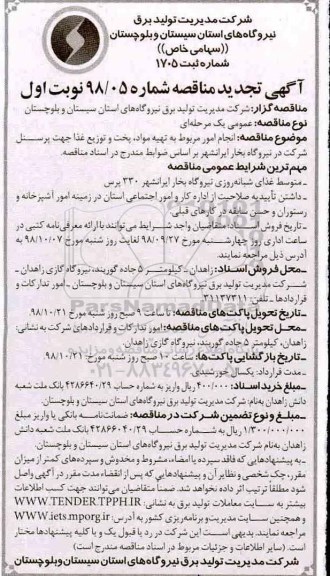 شرکت مدیریت تولید برق
نیروگاه‌های استان سیستان و بلوچستان
((سهامی خاص))
شماره ثبت ۱۷۰۵
آگهی تجدید مناقصه شماره ۹۸/۰۵ نوبت اول
مناقصه گزار: شرکت مدیریت تولید برق نیروگاه‌های استان سیستان و بلوچستان
نوع مناقصه: عمومی یک مرحله‌ای
موضوع مناقصه: انجام امور مربوط به تهیه مواد، پخت و توزیع غذا جهت پرسنل
شرکت در نیروگاه بخار ایرانشهر بر اساس ضوابط مندرج در اسناد مناقصه.
مهم‌ترین شرایط عمومی مناقصه
ـ متوسط غذای شبانه‌روزی نیروگاه بخار ایرانشهر ۳۳۰ پرس
ـ داشتن تأییدیه صلاحیت از اداره کار و امور اجتماعی استان در زمینه امور آشپزخانه و
رستوران و حسن سابقه در کارهای قبلی.
ـ تاریخ فروش اسناد: متقاضیان واجد شرایط می‌توانند با ارائه معرفی‌نامه کتبی در
ساعت اداری روز چهارشنبه مورخ ۹۸/۰۹/۲۷ لغایت روز شنبه مورخ ۹۸/۱۰/۰۷ به
آدرس ذیل مراجعه نمایند.
ـ محل فروش اسناد: زاهدان ـ کیلومتر ۵ جاده گوربند، نیروگاه گازی زاهدان ـ
شرکت مدیریت تولید برق نیروگاه‌های سیستان و بلوچستان ـ امور تدارکات و
قراردادها ـ تلفن: ۳۱۱۳۷۳۱۱
ـ تاریخ تحویل پاکت‌های مناقصه: تا ساعت ۹ صبح روز شنبه مورخ ۹۸/۱۰/۲۱.
ـ محل تحویل پاکت‌های مناقصه: امور تدارکات و قراردادهای شرکت به نشانی:
زاهدان، کیلومتر ۵ جاده گوربند، نیروگاه گازی زاهدان
ـ تاریخ بازگشایی پاکت‌ها: ساعت ۱۰ صبح روز شنبه مورخ: ۹۸/۱۰/۲۱
ـ مدت قرارداد: یکسال خورشیدی
ـ مبلغ خرید اسناد: ۴۰۰/۰۰۰ ریال واریز به شماره حساب ۴۲۸۶۶۴۰/۲۹ بانک ملت شعبه
دانش زاهدان به‌نام: شرکت مدیریت تولید برق نیروگاه‌های استان سیستان و بلوچستان.
ـ مبلغ و نوع تضمین شرکت در مناقصه: ضمانت‌نامه بانکی یا واریز مبلغ
۱/۳۰۰/۰۰۰/۰۰۰ ریال به شماره حساب ۴۲۸۶۶۴۰/۲۹ بانک ملت شعبه دانش
زاهدان به‌نام شرکت مدیریت تولید برق نیروگاه‌های استان سیستان و بلوچستان.
ـ به پیشنهادهایی که فاقد سپرده یا امضاء، مشروط و مخدوش و سپرده‌های کمتر از میزان
مقرر، چک شخصی و نظایر آن و پیشنهادهایی که پس از انقضاء مدت مقرر در آگهی واصل
شود مطلقاً ترتیب اثر داده نخواهد شد. ضمناً متقاضیان می‌توانند جهت کسب اطلاعات
بیشتر به سایت معاملات تولید برق به نشانی: WWW.TENDER.TPPH.IR
و همچنین سایت مدیریت و برنامه‌ریزی کشور به آدرس: WWW.iets.mporg.ir
مراجعه نمایند. بدیهی است این شرکت در رد یا قبول یک و یا کلیه پیشنهادها مختار
است. (سایر اطلاعات و جزئیات مربوط در اسناد مناقصه مندرج است)
شرکت مدیریت تولید برق نیروگاه‌های استان سیستان و بلوچستان